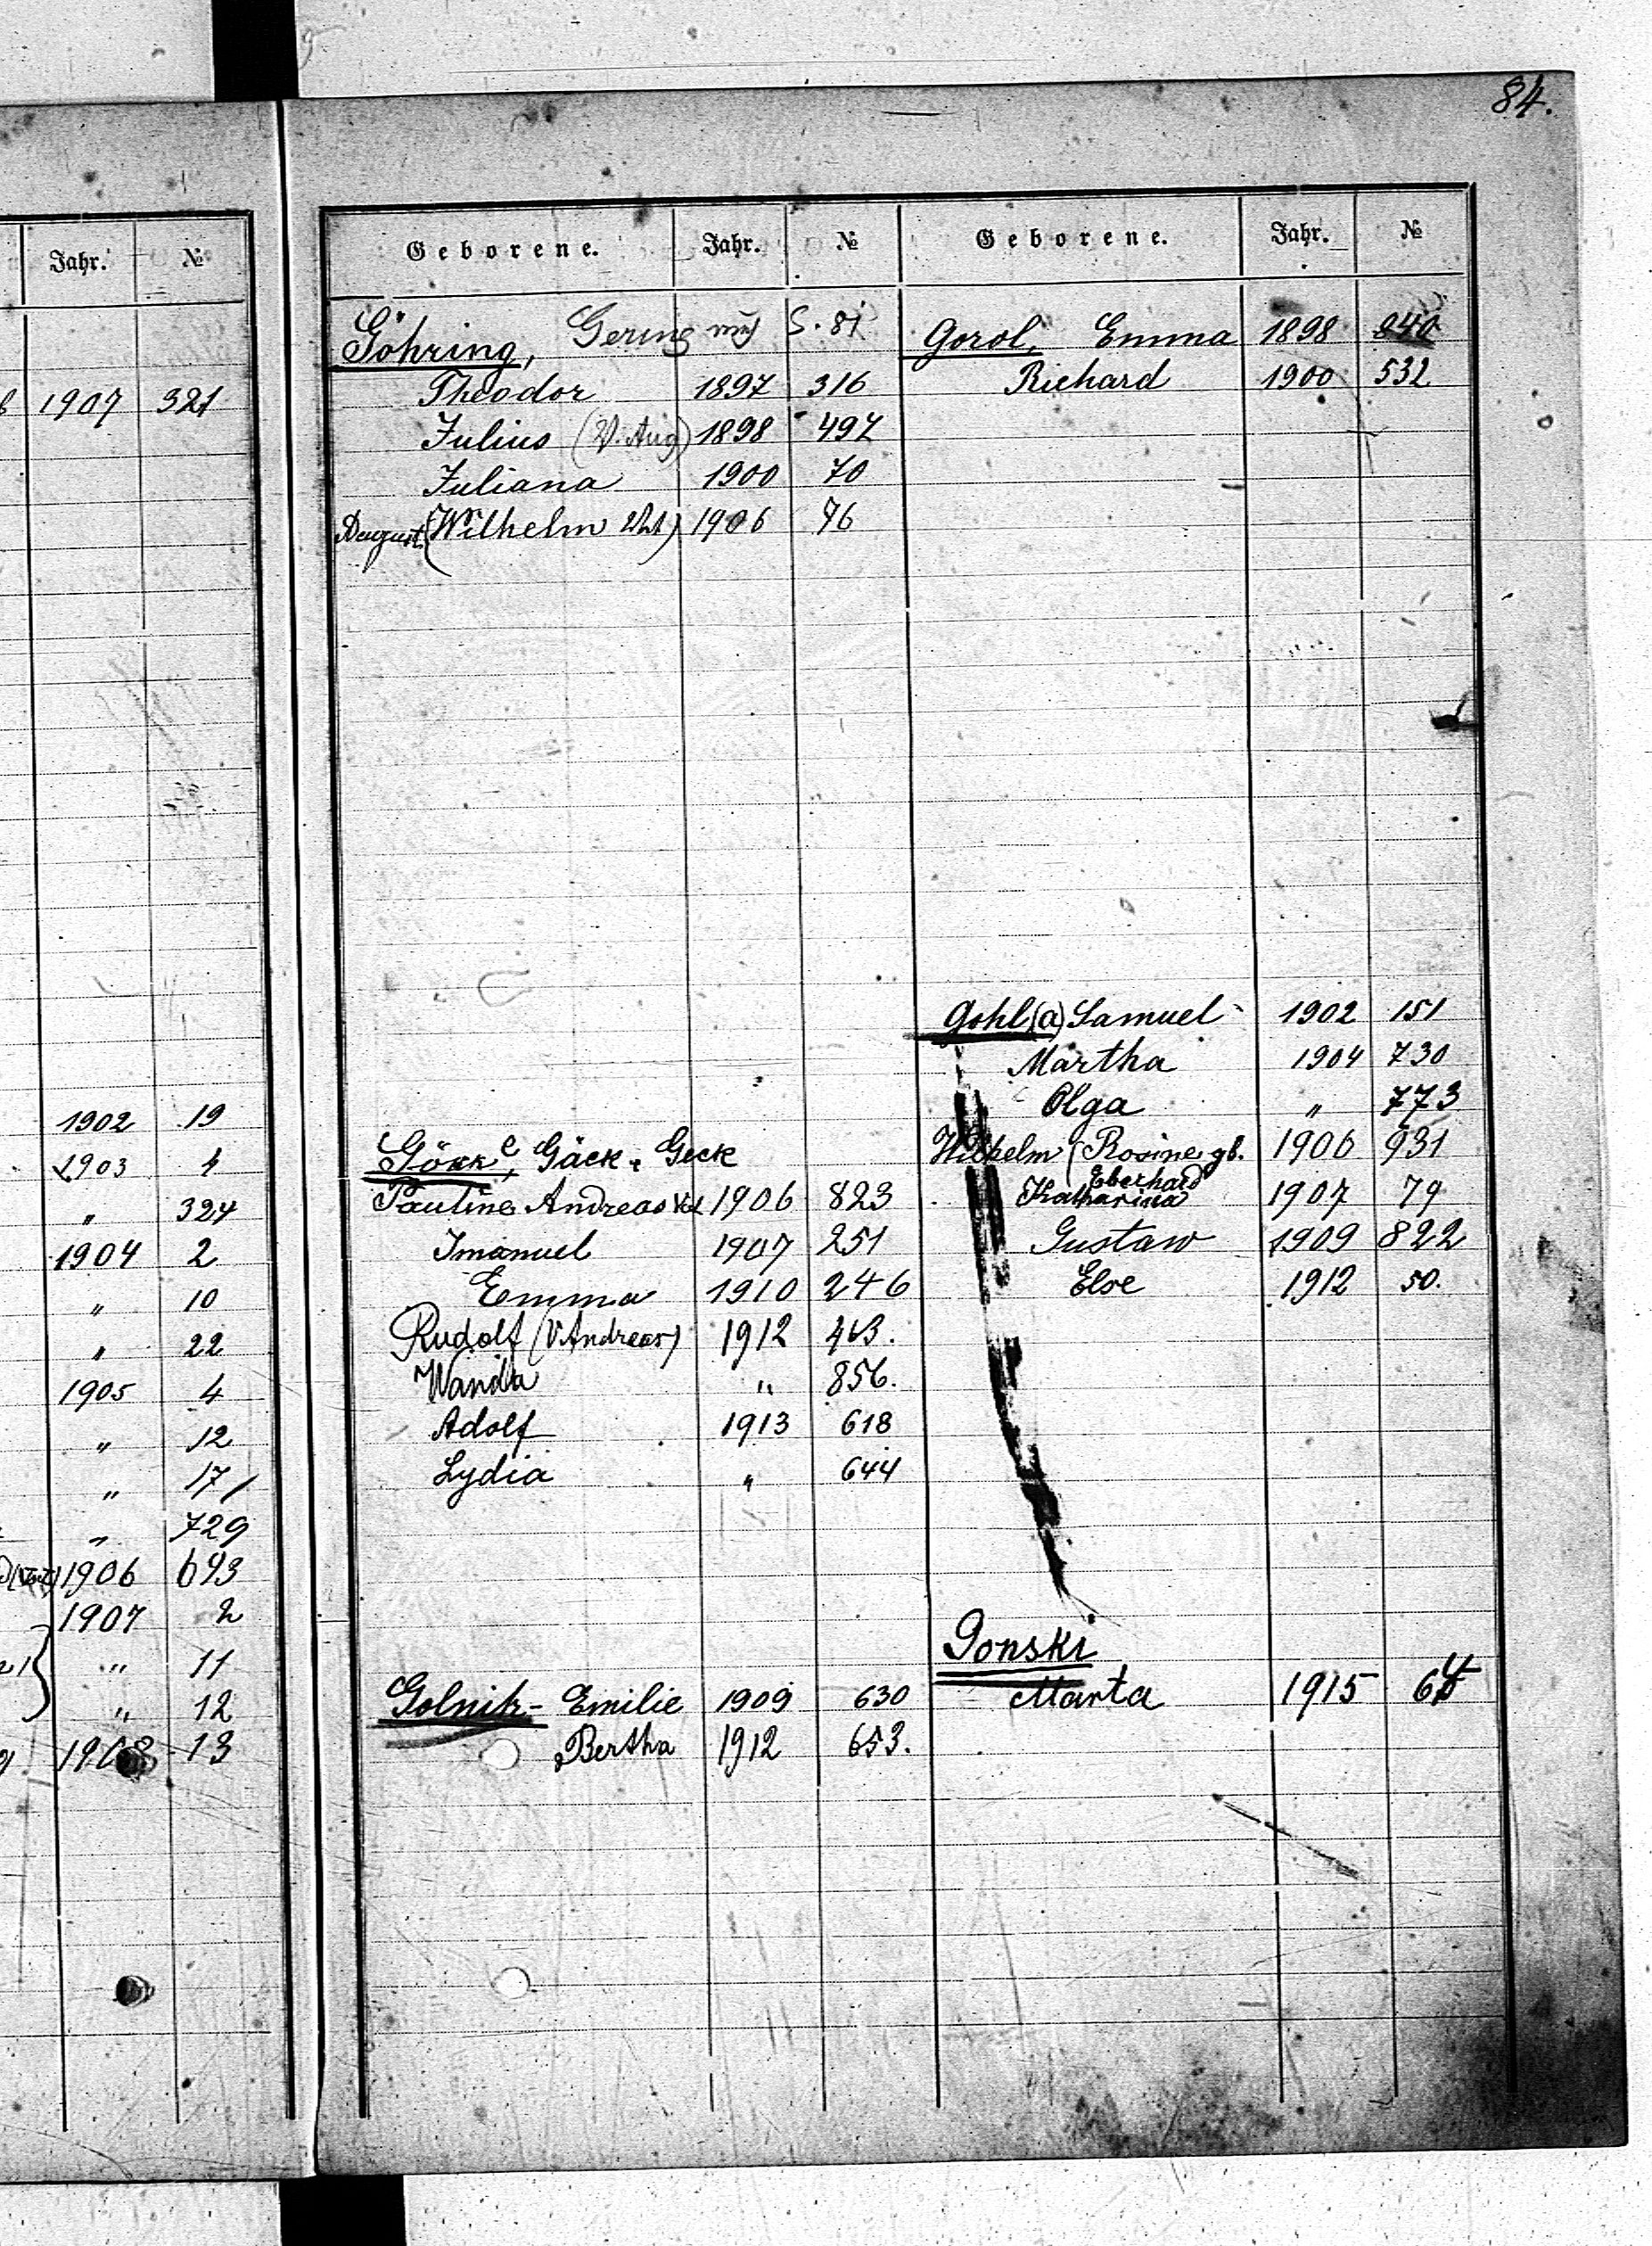 84.
Jahr. №
1907 321
1902 19
1903 4
" 324
1904 2
" 10
" 22
1905 4
" 12
" 17
" 729
1906 693
1907 2
" 11
" 12
1908 13
Geborene. Jahr. №
Göhring, Gering S. 81
Theodor 1897 316
Julius (V. Aug) 1898 497
Juliana 1900 70
August (Wilhelm Vat) 1906 76
Göck, Gäck, Geck
Pauline Andreas Vat 1906 823
Imanuel 1907 251
Emma 1910 246
Rudolf (V Andreas) 1912 463.
Wanda " 856.
Adolf 1913 618
Lydia " 644
Golnik - Emilie 1909 630
Bertha 1912 653.
Geborene. Jahr. №
Gorol, Emma 1898 840
Richard 1900 532
Gohl (a) Samuel 1902 151
Martha 1904 730
Olga " 773
Wilhelm (Rosine gb. 1906 931
Eberhard
Katharina 1907 79
Gustaw 1909 822
Else 1912 50.
Gonski
Marta 1915